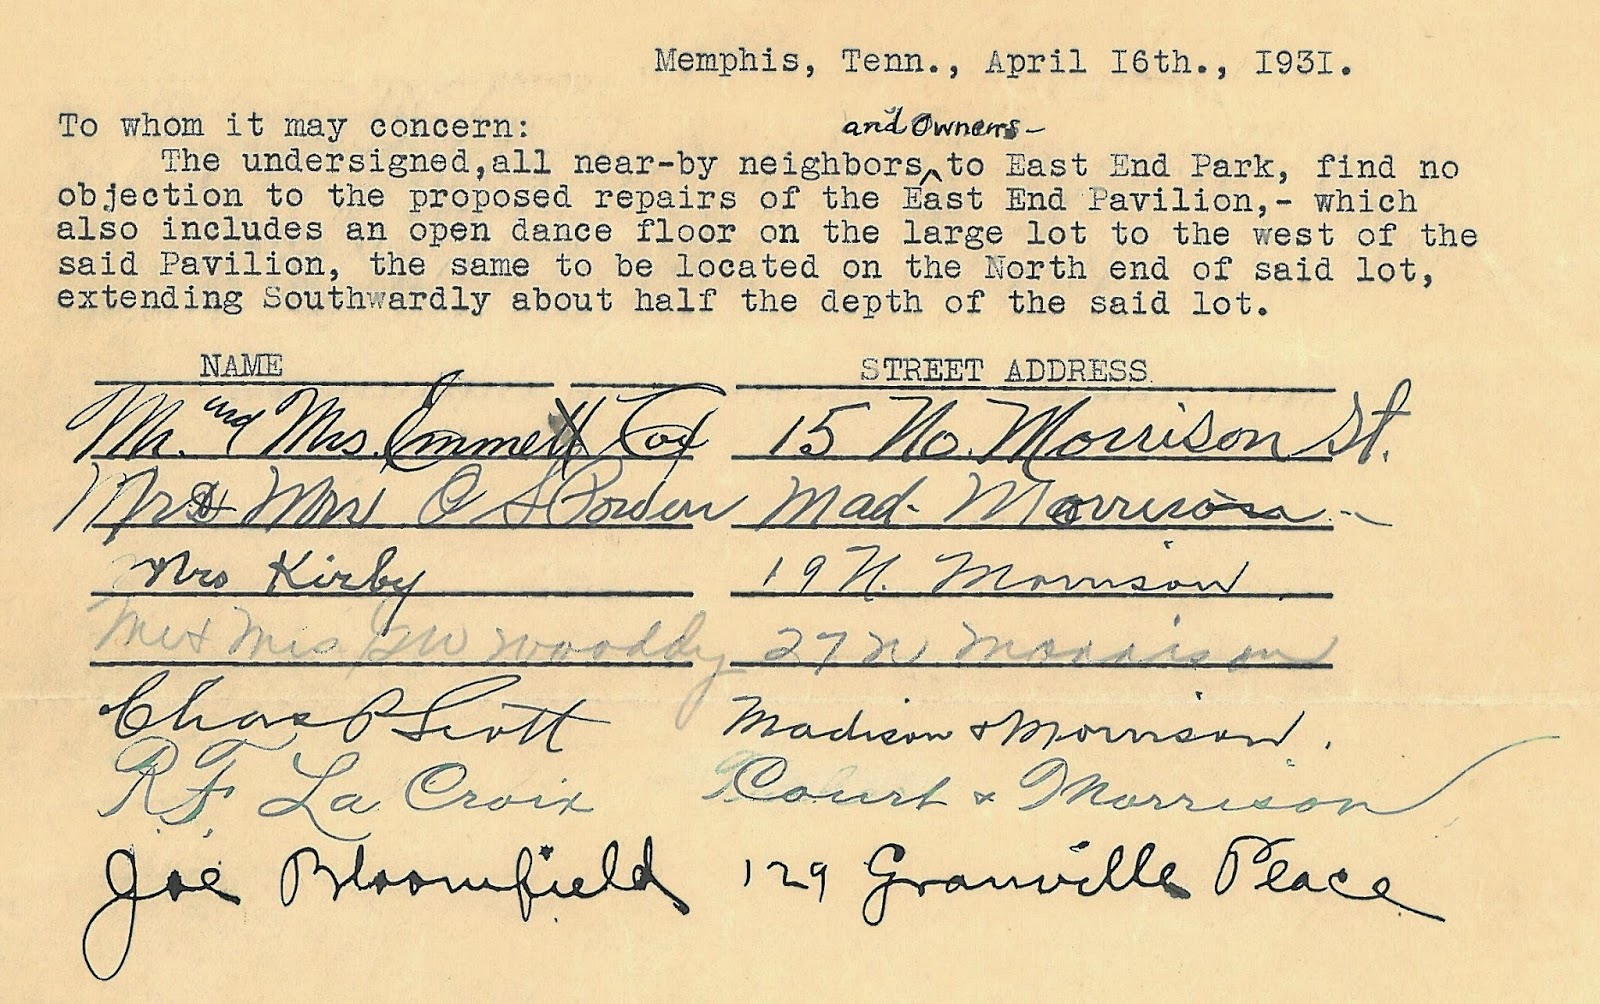 Memphis, Tenn., April I6th., I93I.
To whom it may concern:
and Owners-
The undersigned,all near-by neighbors^to East End Park, find no
objection to the proposed repairs of the East End Pavilion,- which
also includes an open dance floor on the large lot to the west of the
said Pavilion, the same to be located on the North end of said lot,
extending Southwardly about half the depth of the said lot.
NAME STREET ADDRESS
Mr. and Mrs. Emmett Cox 15 No. Morrison St.
Mr & Mrs O S Mad- Morrison--
Mrs Kirby 19 N. Morrison
Mr & Mrs Wooddy 27 N Morrison
Chas P Scott Madison & Morrison.
R.F. La Croix Court & Morrison
Joe Bloomfield 129 Granville Place